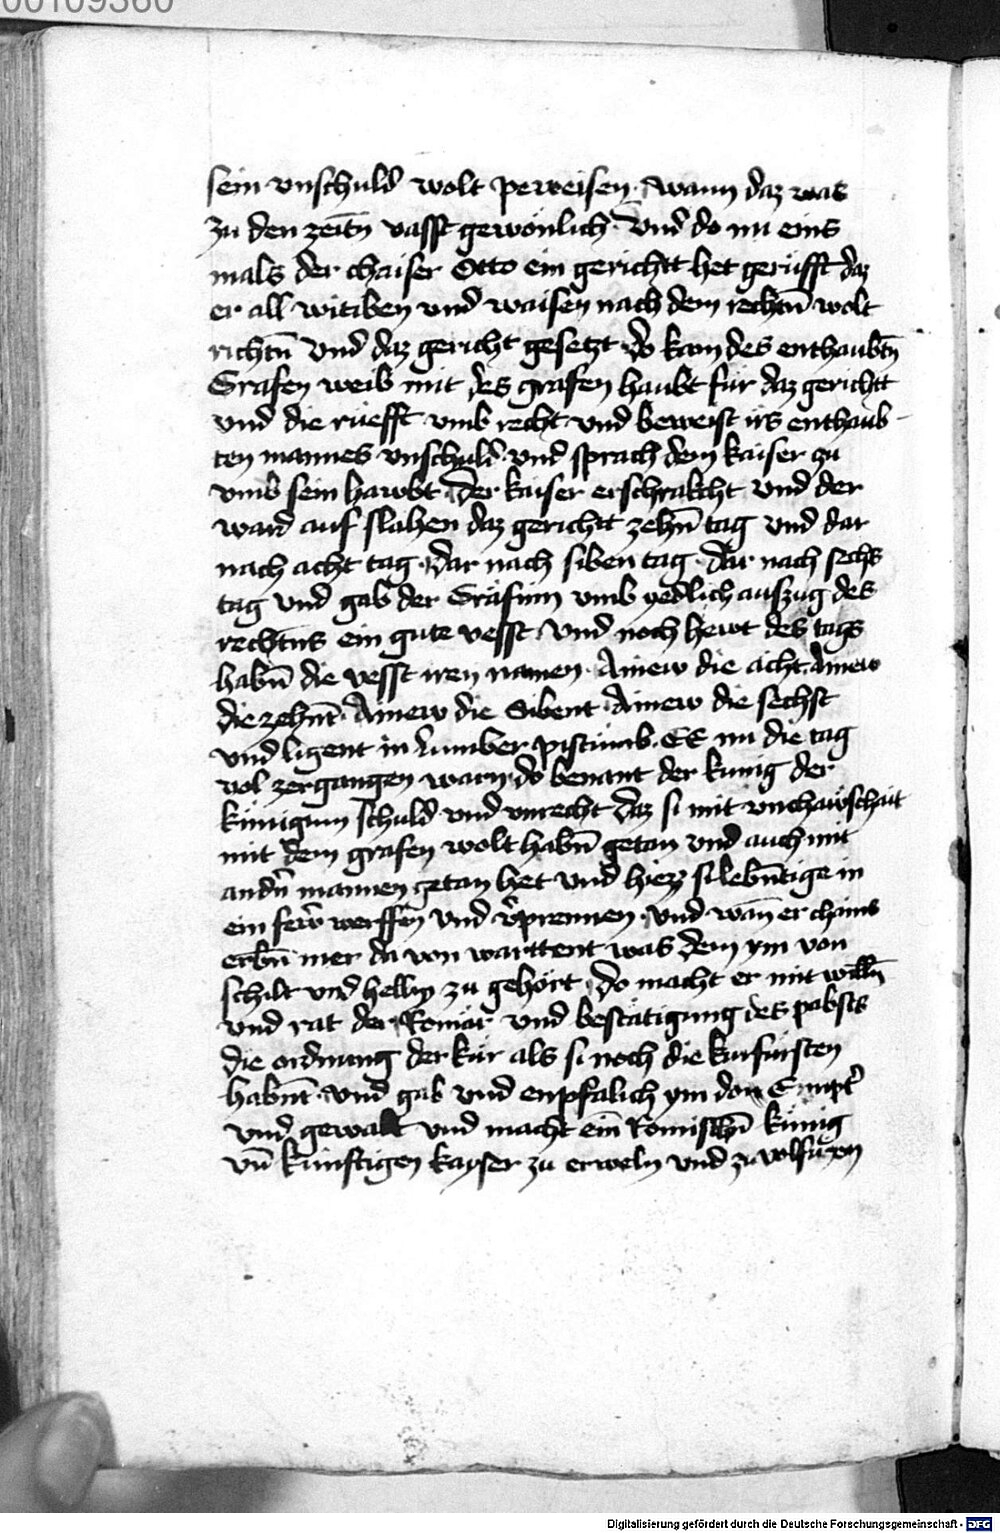 00109360
sein vnschuld wolt peweisen · wann daz was
zu den zeitn̄ vasst gewönlich · Vnd do nu eins
mals der chaiser Otto ein gerichtt het gerüfft daz
er all witiben vnd waisen nach dem rechtn̄ wolt
richtn̄ Vnd daz gericht gesetzt do kam des enthaubtn̄
Grafen weib mit des grafen haubt für daz gerichtt
vnd die rüefft vmb recht vnd beweist irs enthaub-
ten mannes vnschuld vnd sprach dem kaiser zu
vmb sein hawbt · Der kaiser erschrakcht vnd der
ward auf slahen daz gerichtt zehn̄ tag vnd dar
nach acht tag · Dar nach siben tag · dar nach sechs
tag vnd gab der Gräfinn vmb yedlich auszug des
rechtns ein gute vesst · vnd noch hewt des tags
habn̄ die vesst iren namen · Ainew die acht · Ainew
die zehnt · Ainew die Sibent · Ainew die sechst
vnd ligent in Lumber pistumb · Es nu die tag
vol zergangen warn do benant der kunig der
künigunn schuld vnd vnrecht daz si mit vnchawschait
mit dem grafen wolt habn̄ getan vnd auch mit
andn̄ mannen getan het vnd hiez si lebn̄tige in
ein fewr werffen vnd v̄prennen · vnd wan̄ er chains
erbn̄ mer da von warttent was dem ym von
schilt vnd hellm zu gehört · do macht er mit willn̄
vnd rat der Romär vnd bestätigung des pabsts
die ordnung der kür als si noch die kurfürsten
habn̄t · vnd gab vnd enpfalich ym den
vnd gewalt vnd macht ein Romischn̄ künig
vn̄ künftigen kayser zu erweln vnd zu volfüren
Digitalisierung gefördert durch die Deutsche Forschungsgemeinschaft - DFG